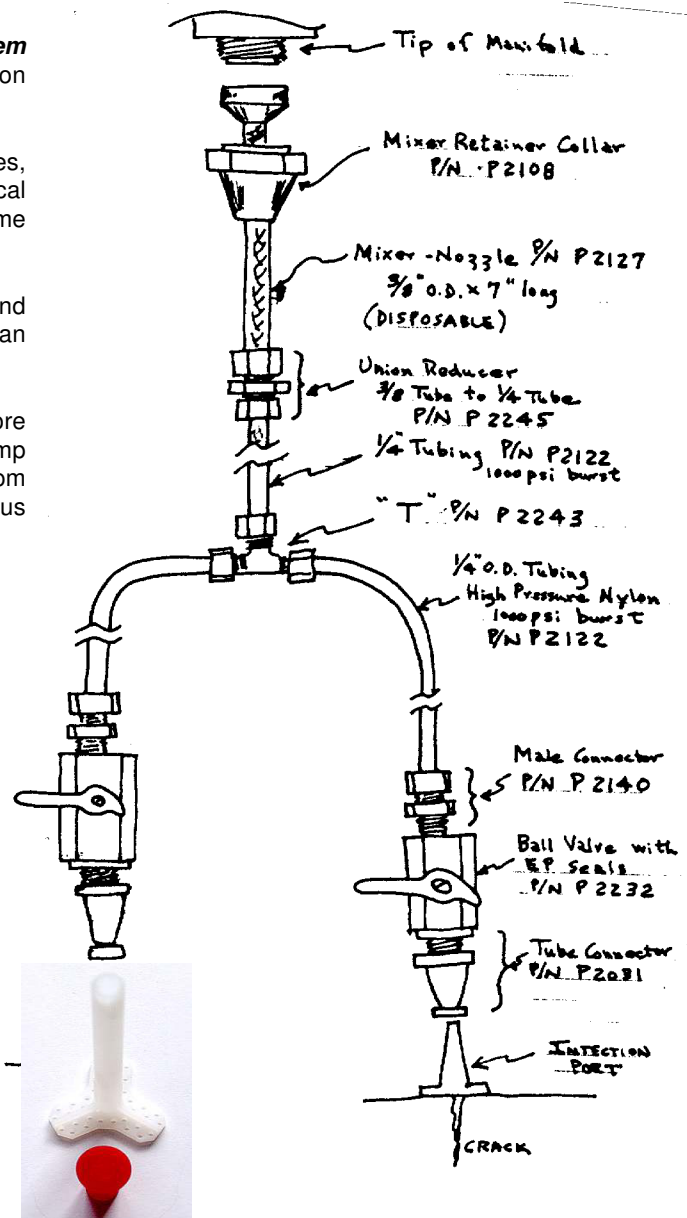 em
on
es,
cal
me
nd
an
ore
mp
om
us
Tip of Manifold
Mixer Retainer Collar
P/N P2108
Mixer-Nozzle P/N P2127
3/8" O.D. x 7" long
(DISPOSABLE)
Union Reducer
3/8 Tube to 1/4 Tube
P/N P2245
1/4" Tubing P/N P2122
1000 psi burst
"T" P/N P2243
1/4" O.D. Tubing
High Pressure Nylon
1000 psi burst
P/N P2122
Male Connector
P/N P2140
Ball Valve with
EP Seals
P/N P2232
Tube Connector
P/N P2081
INJECTION
PORT
CRACK